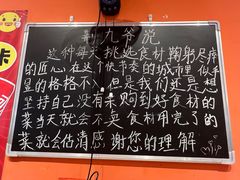 荆九爷说
这种每天挑选食材鞠躬尽瘁
的匠心在这个快节奏的城市里似乎
显的格格不入但是我们还是想
坚持自己没有采购到好食材的
菜当天就会不卖食材用完了的
菜就会估清感谢您的理解